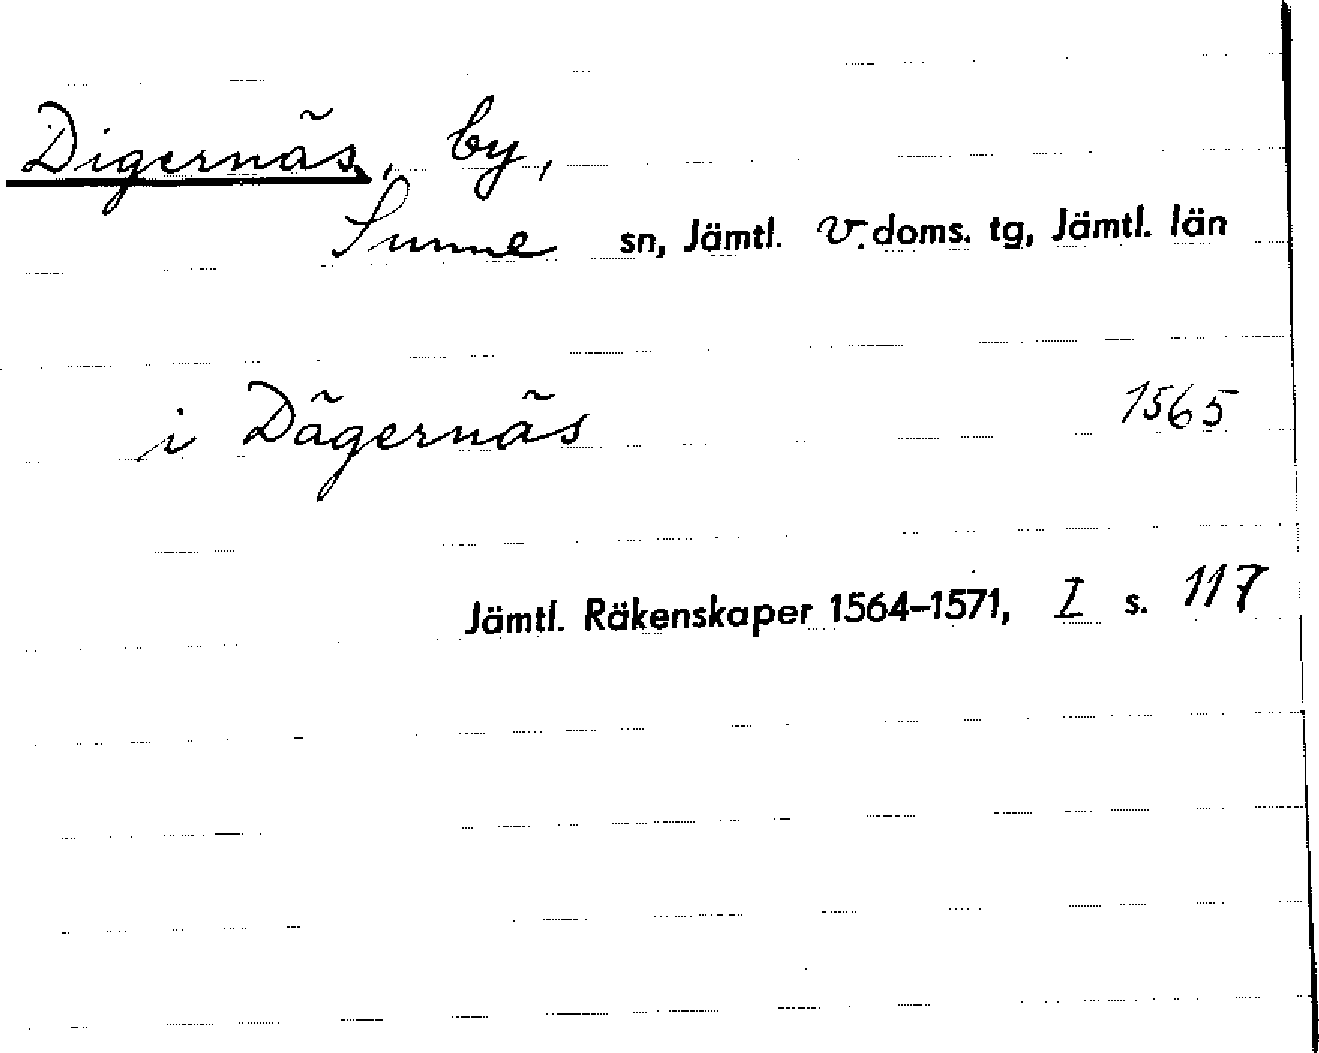 Digernäs, by,
Sunne sn, Jämtl. v. doms. tg, Jämtl. län
i Dägernäs 1565
Jämtl. Räkenskaper 1564–1571, I s. 117